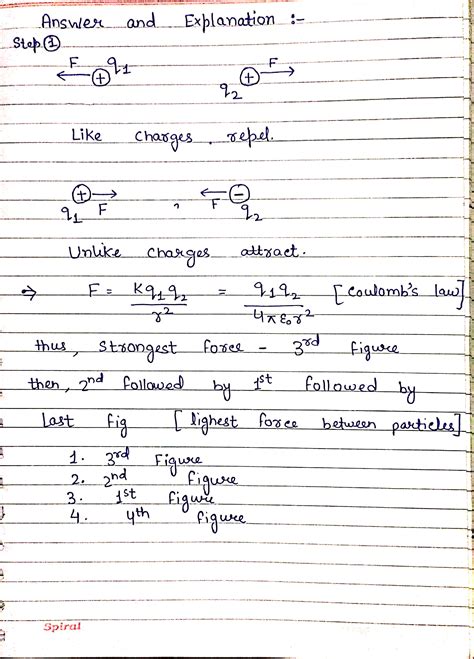 Answer and Explanation :-
Step ①
F ← ⊕ q1   q2 ⊕ → F
Like charges repel.
q1 ⊕ → F , F ← ⊖ q2
Unlike charges attract.
⇒ F = Kq1q2/r² = q1q2/4πε0r² [Coulomb's law]
thus, strongest force - 3rd figure
then, 2nd followed by 1st followed by
Last fig [lighest force between particles]
1. 3rd Figure
2. 2nd figure
3. 1st figure
4. 4th figure
Spiral